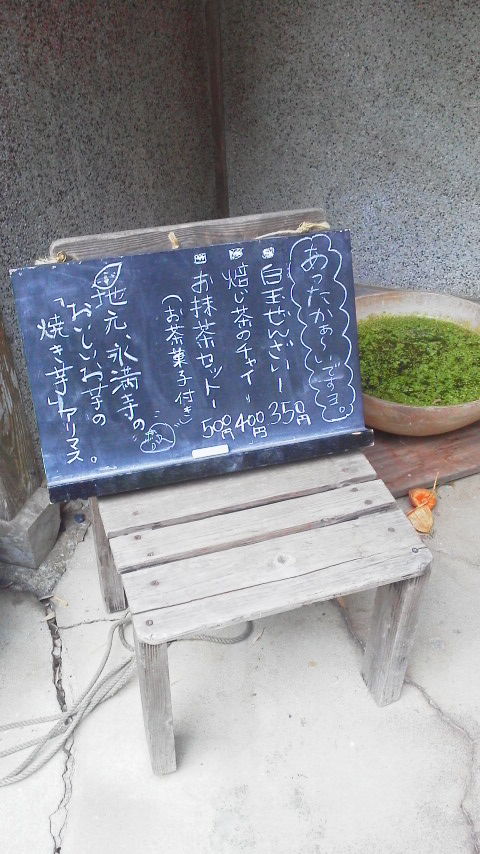 あったかぁ〜いですヨ。
白玉ぜんざいー350円
焙じ茶のチャイ〃400円
お抹茶セットー500円
(お茶菓子付き)
地元、永満寺の
おいしいお芋の
「焼き芋」アリマス。